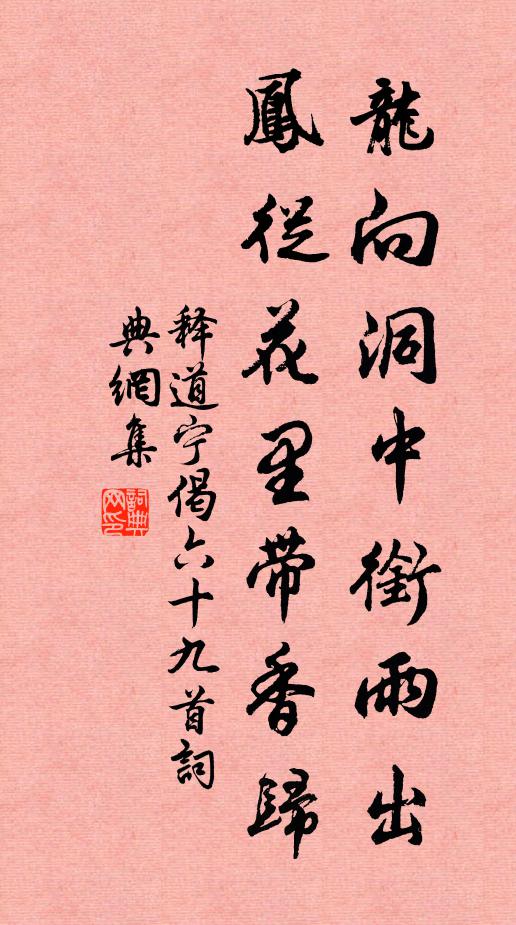 龍向洞中銜雨出
鳳從花里帶香歸
释道宁偈六十九首詞
典網集
詞典網印